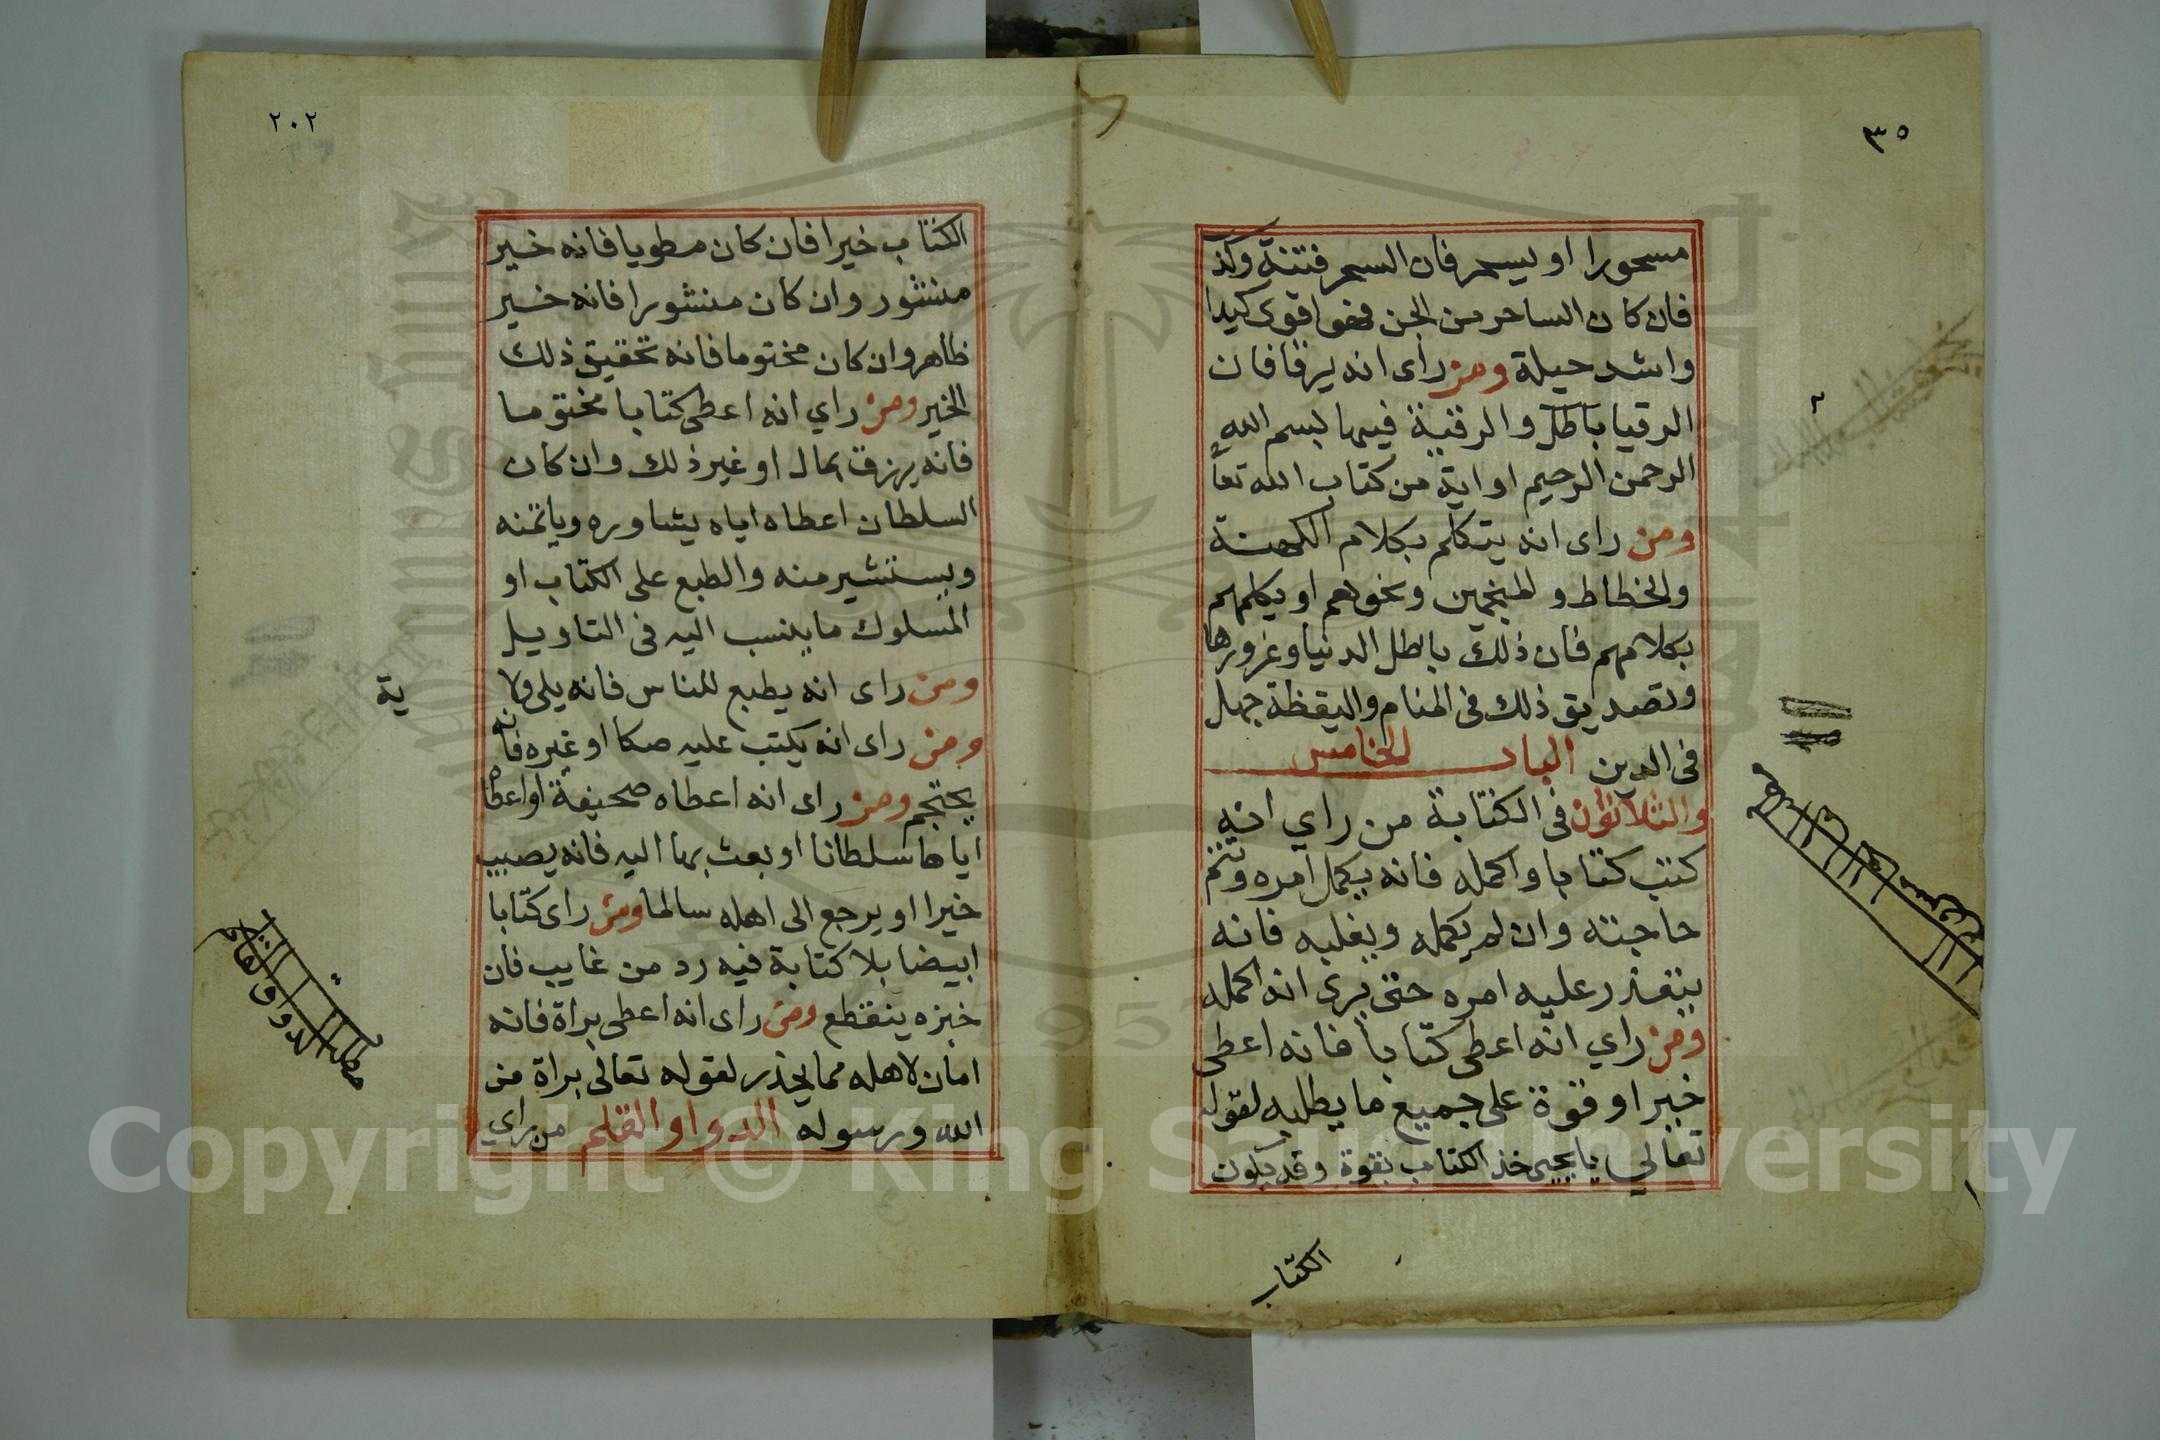 ٣٥
مسحورا او يسحر فان السحر فتنة وكذ
فان كان الساحر من الجن فهو اقوى كيدا
واشد حيلة ومن رأى انه يرقا فان
الرقيا باطل والرقية فيها بسم الله
الرحمن الرحيم او اية من كتاب الله تعا
ومن راى انه يتكلم بكلام الكهنة
والخطاط والمنجمين ونحوهم او يكلمهم
بكلامهم فان ذلك باطل الدنيا وغرورها
وتصديق ذلك فى المنام واليقظة جهل
فى الدين الباب الخامس
والثلاثون فى الكتابة من راي انه
كتب كتابا واكمله فانه يكمل امره وتتم
حاجته وان لم يكمله ويغلبه فانه
يتعذر عليه امره حتى يرى انه اكمله
ومن راي انه اعطى كتابا فانه اعطى
خيرا وقوة على جميع ما يطلبه لقوله
تعالي يا يحيى خذ الكتاب بقوة وقد يكون
الكتاب
٢٠٢
الكتاب خيرا فان كان مطويا فانه خير
منشور وان كان منشورا فانه خير
ظاهر وان كان مختوما فانه تحقيق ذلك
الخير ومن راي انه اعطى كتابا مختوما
فانه يرزق بمال او غير ذلك وان كان
السلطان اعطاه اياه يشاوره وياتمنه
ويستشير منه والطبع على الكتاب او
المسلوك ما ينسب اليه فى التاويل
ومن راى انه يطبع للناس فانه يلى ولا
ية
ومن راى انه يكتب عليه صكا او غيره فانه
يحتجم ومن راى انه اعطاه صحيفة او اعطا
اياها سلطانا او بعث بها اليه فانه يصيب
خيرا او يرجع الى اهله سالما ومن راى كتابا
ابيضا بلا كتابة فيه رد من غايب فان
خبزه ينقطع ومن راى انه اعطى براة فانه
امان لاهله مما يحذر لقوله تعالى براة من
الله ورسوله الدوا والقلم من راي
Copyright © King Saud University